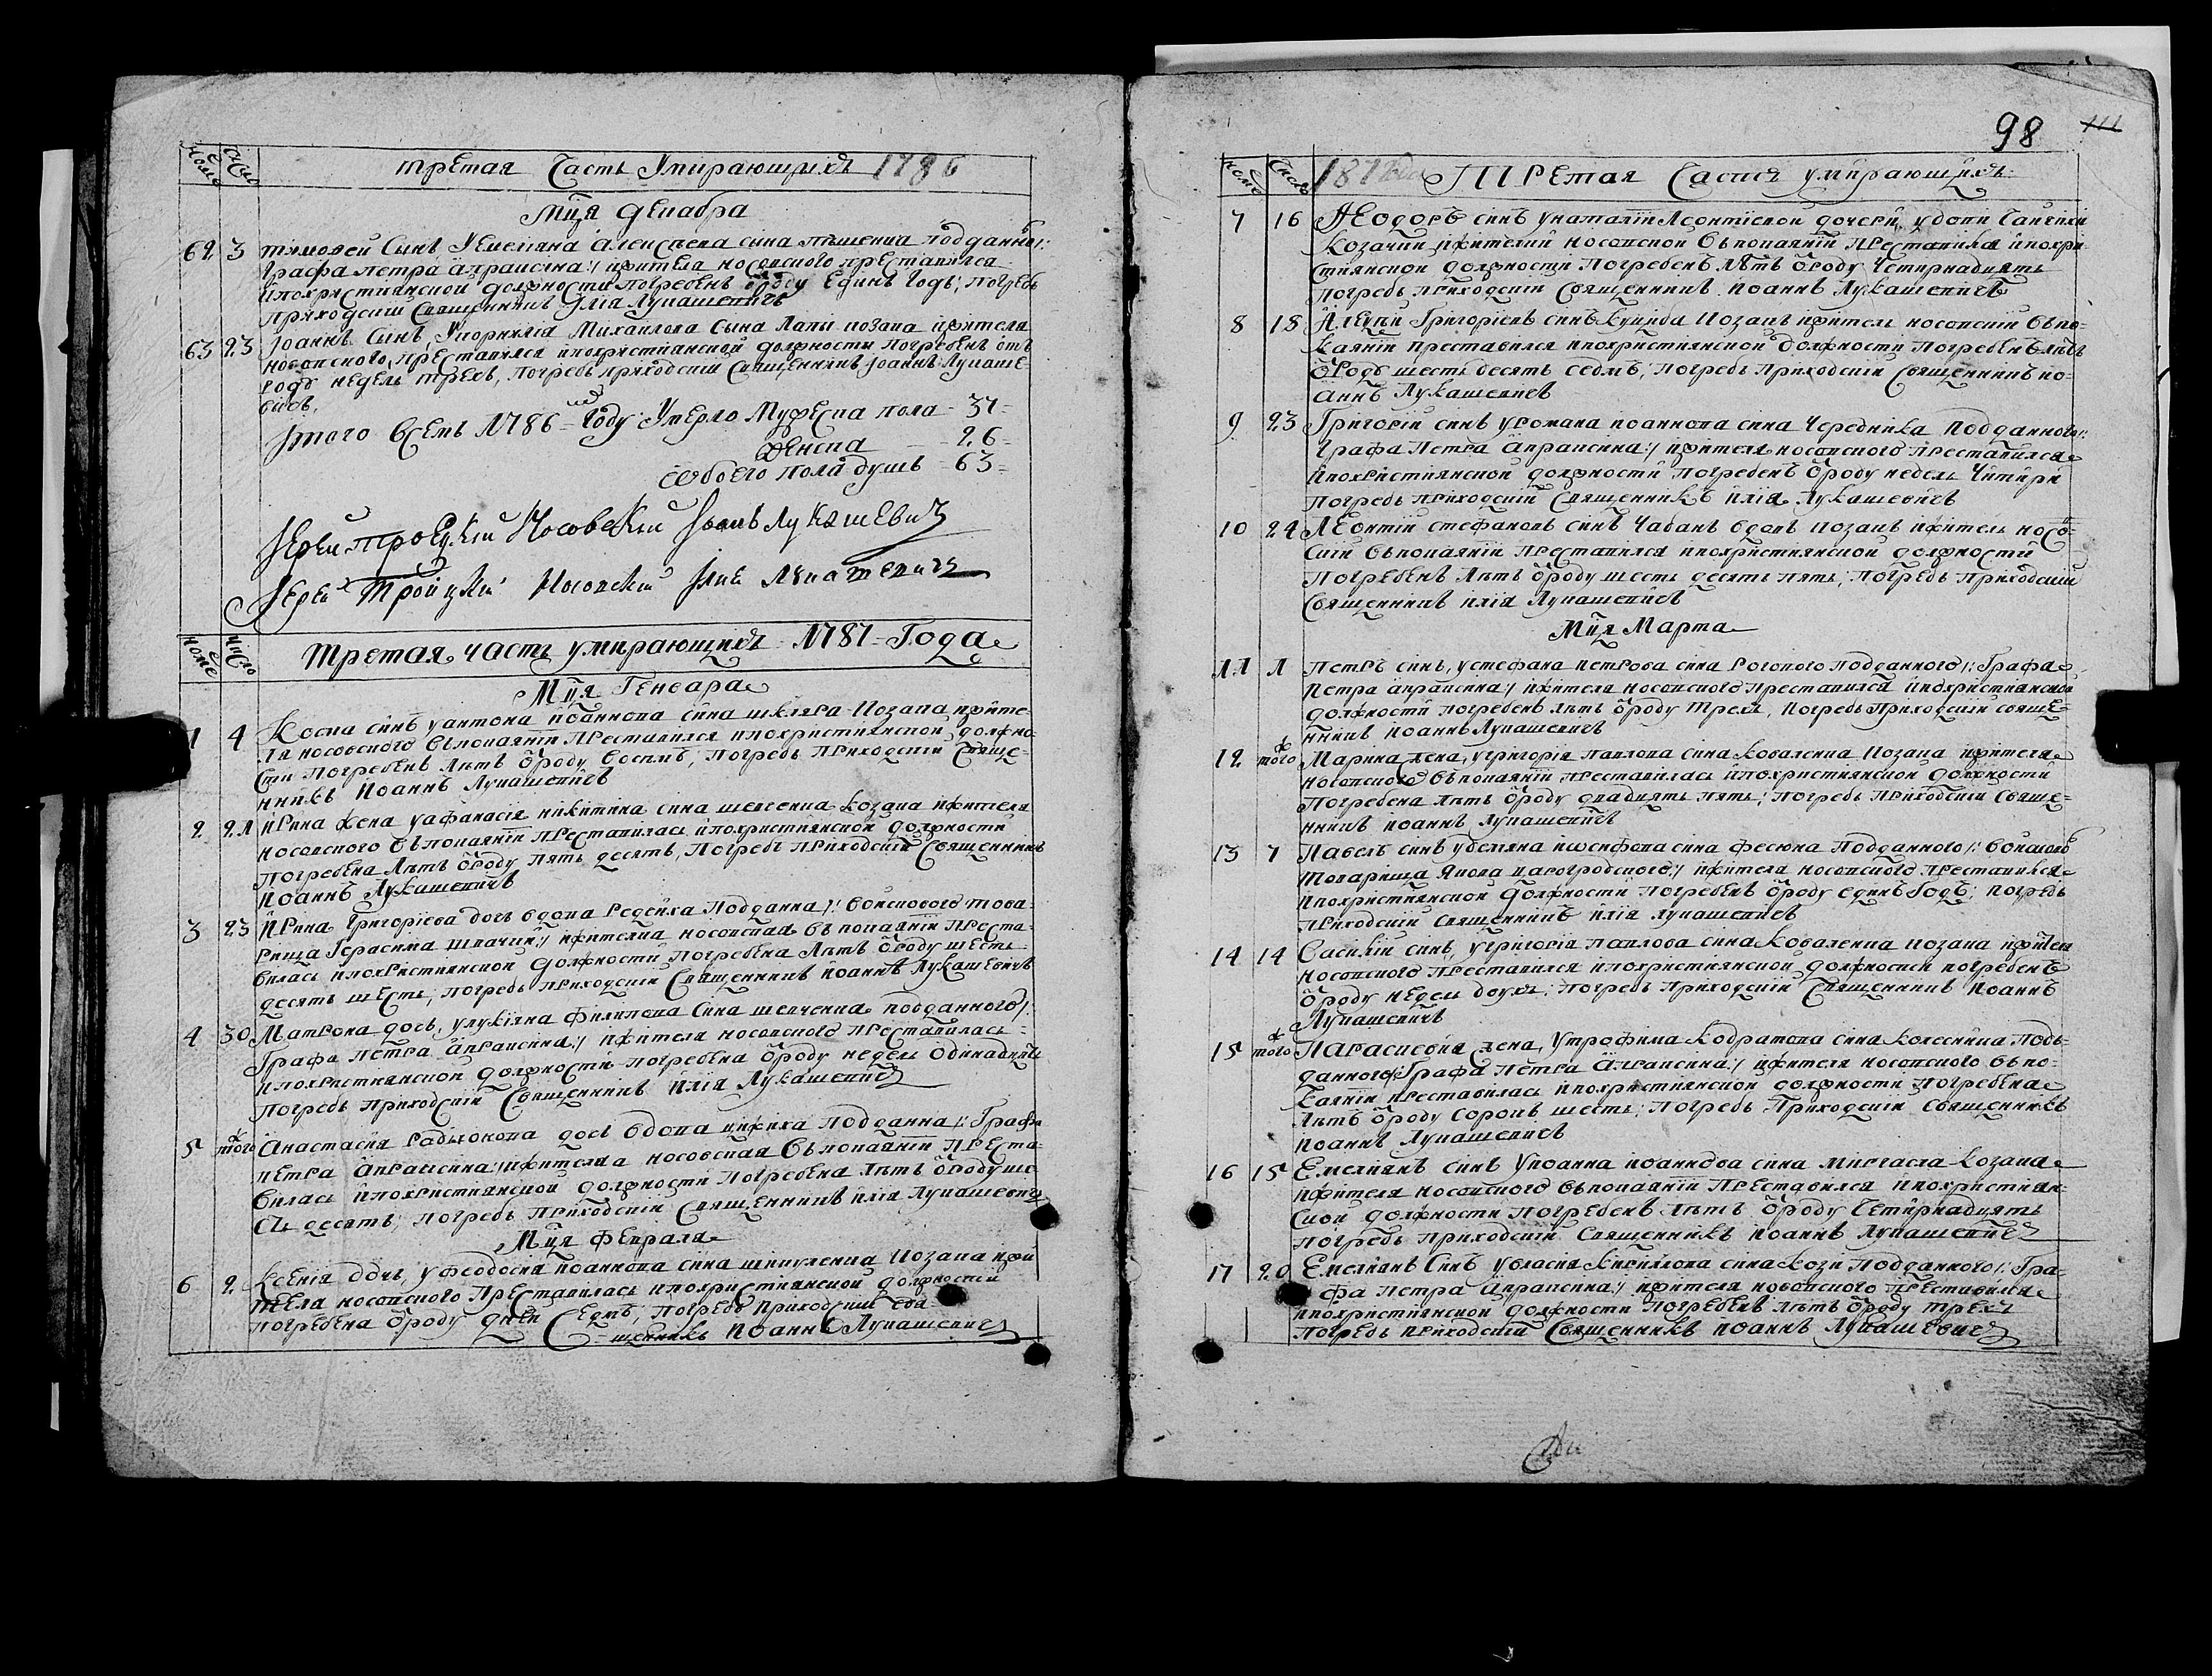 номе число третая Часть Умирающихъ 1786
Мця декабра
62 3 тимофей Сынъ, Уемелияна Алексѣева сына пѣшенка подданнаго /:
Графа петра апраксина:/ жителя носовского преставился
ипохристиянской должности погребенъ ѿроду Единъ Годъ; погребъ
приходскій Священникъ Илія Лукашевичъ
63 23 Iоаннъ Сынъ, Укорнилія Михайлова Сына Лапы козака жителя
носовского, преставился ипохристианской должности погребенъ отъ
роду недель трехъ, погребъ приходскій Священникъ Iоаннъ Лукаше-
вичъ.
Iтого Всемъ 1786-мъ Году Умерло Мужеска пола - 37 -
Женска - 26 -
ѡбоего пола душъ - 63 -
Iерей троецкій Носовскій Iоанъ Лукашевичъ
Iерей Тройцкій Носовскій Илия Лукашевичъ
номе число Третая часть умирающихъ 1787 - Года
Мця Генвара
1 4 Косма синъ уантона иоаннова сина шкляра козака жите-
ля носовского въпокаяніи преставился ипохристиянской должно-
сти погребенъ лѣтъ ѿроду восемъ; погребъ приходскій Свяще-
нникъ Иоаннъ Лукашевичъ
2 21 Ирина жена уафанасія никитина сина шевченка козака жителя
носовского въпокаяніи преставилась ипохристиянской должности
погребена лѣтъ ѿроду пять десятъ, погребъ приходскій Священникъ
Иоаннъ Лукашевичъ
3 23 Ирина Григоріева дочъ вдова редчиха подданна /: войскового това-
рища Герасима шпачин:/ жителка носовская въпокаяніи преста-
вилась ипохристиянской должности погребена лѣтъ ѿроду шесть
десятъ шесть; погребъ приходскій Священникъ Иоаннъ Лукашевичъ
4 30 Матрона дочъ, улукіяна филипова сина шевченка подданного /:
Графа петра апраксина:/ жителя носовского преставилась
ипохристиянской должности погребена ѿроду недель одинадцять
погребъ приходскій Священникъ Илія Лукашевичъ
5 того ж Анастасия радионова дочъ вдова жиха подданна /: Графа
петра апраксина:/ жителка носовская въпокаяніи преста-
вилась ипохристиянской должности погребена лѣтъ ѿроду ше-
сть десятъ; погребъ приходскій Священникъ илія Лукашевичъ
Мця Февраля
6 2 Ксенія дочъ, уфеодосия иоаннова сина шкуленка козака жи-
теля носовского преставилась ипохристиянской должности
погребена ѿроду дней Седмъ; погребъ приходскій Свя-
щенникъ Иоаннъ Лукашевичъ
98 111
номе число 1787 года Третая Часть умирающихъ
7 16 Ѳеодоръ синъ унаталіи Леонтіевой дочери, удови
Козачки жителки носовской въпокаяніи преставился ипохри-
стиянской должности погребенъ лѣтъ ѿроду четирнадцять
погребъ приходскій Священникъ Иоаннъ Лукашевичъ
8 18 Алеѯѣй Григоріевъ синъ Куциба Козакъ житель носовскій въпо-
каяніи преставился ипохристиянской должности погребенъ лѣтъ
ѿроду шесть десятъ седмъ; погребъ приходскій Священникъ ио-
аннъ Лукашевичъ
9 23 Григорій синъ уромана иоаннова сина Чередника подданного /:
Графа Петра апраксина:/ жителя носовского преставился
ипохристиянской должности погребенъ ѿроду недель Читири
погребъ приходскій Священникъ илія Лукашевичъ
10 24 Леонтій стефановъ синъ Чабанъ вдовъ козакъ житель носов-
скій въпокаяніи преставился ипохристиянской должности
погребенъ лѣтъ ѿроду шесть десятъ пять; погребъ приходскій
Священникъ илія Лукашевичъ
Мця Марта
11 1 петръ синъ, устефана петрова сина рогового подданного /: Графа
петра апраксина:/ жителя носовского преставился ипохристиянской
должности погребенъ лѣтъ ѿроду трехъ, погребъ приходскій свяще-
нникъ иоаннъ Лукашевичъ
12 того ж Марина жена, угригорія павлова сина коваленка козака жителя
носовского въпокаяніи преставилась ипохристиянской должности
погребена лѣтъ ѿроду двадцять пять; погребъ приходскій свяще-
нникъ иоаннъ Лукашевичъ
13 7 Павелъ синъ удемяна иѡсифова сина фесюна подданного /: войсково
товарища Якова царогродского:/ жителя носовского преставился
ипохристиянской должности погребенъ ѿроду единъ Годъ; погребъ
приходскій священникъ илія лукашевичъ
14 14 Василій синъ, угригорія павлова сина Коваленка козака жителя
носовского преставился ипохристиянской должности погребенъ
ѿроду недель двухъ; погребъ приходскій Священникъ иоаннъ
Лукашевичъ
15 того ж Параскевия жена, Утрофима Кодратова сина колесника Под-
данного /: Графа Петра Апраксина:/ жителя носовского въпо-
каяніи преставилась ипохристиянской должности погребена
лѣтъ ѿроду сорокъ шесть; погребъ приходскій священникъ
иоаннъ Лукашевичъ
16 15 Емелиянъ синъ Уиоанна иоаннова сина миргасла козака
жителя носовского въпокаяніи преставился ипохристиян-
ской должности погребенъ лѣтъ ѿроду Четирнадцять
погребъ приходскій священникъ иоаннъ Лукашевичъ
17 20 Емелиянъ Синъ увласия Кирилова сина кози подданного /: Гра-
фа петра апраксина:/ жителя носовского преставился
ипохристиянской должности погребенъ лѣтъ ѿроду трехъ
погребъ приходскій Священникъ иоаннъ Лукашевичъ